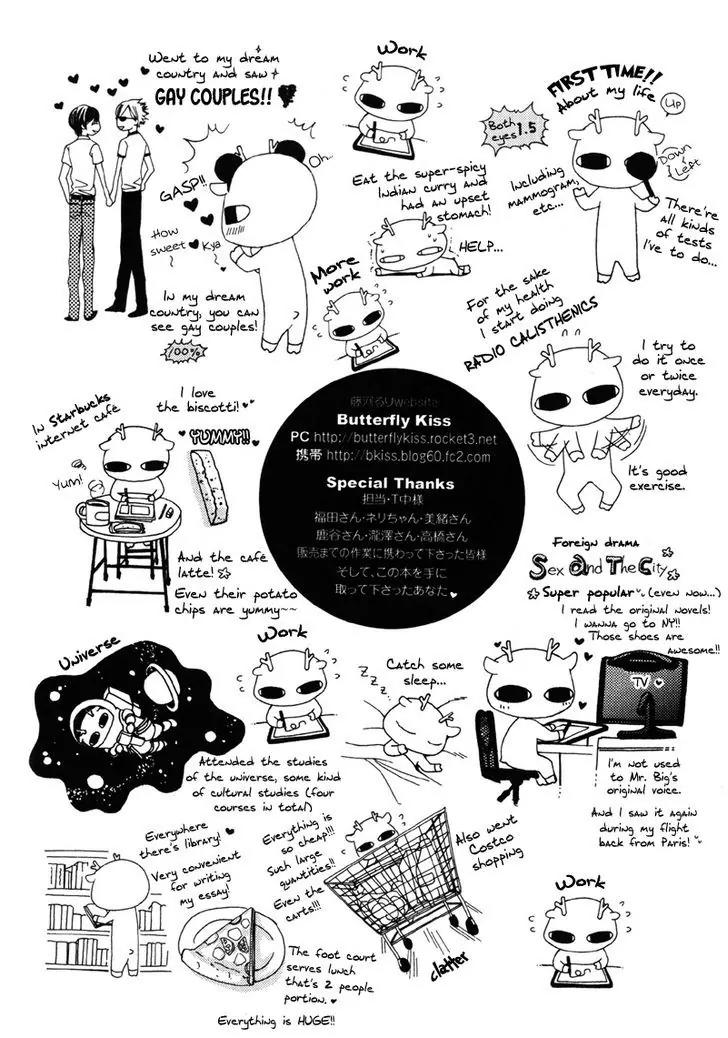 Went to my dream
country and saw
GAY COUPLES!!
GASP!!
Oh.
How
sweet
Kya
In my dream
country, you can
see gay couples!
100%
Work
Eat the super-spicy
Indian curry and
had an upset
stomach!
HELP...
More
work
FIRST TIME!!
About my life
Up
Both
eyes 1.5
Down
Left
Including
mammogram,
etc...
There're
all kinds
of tests
I've to do...
For the sake
of my health
I start doing
RADIO CALISTHENICS
I try to
do it once
or twice
everyday.
It's good
exercise.
In Starbucks
internet café
I love
the biscotti!
YUMMY!!
Yum!
And the café
latte!
Even their potato
chips are yummy~~
藤河るりwebsite
Butterfly Kiss
PC http://butterflykiss.rocket3.net
携帯 http://bkiss.blog60.fc2.com
Special Thanks
担当・T中様
福田さん・ネリちゃん・美緒さん
鹿谷さん・瀧澤さん・高橋さん
販売までの作業に携わって下さった皆様
そして、この本を手に
取って下さったあなた
Foreign drama
Sex and The City
Super popular (even now...)
I read the original novels!
I wanna go to NY!!
Those shoes are
awesome!!
TV
I'm not used
to Mr. Big's
original voice.
And I saw it again
during my flight
back from Paris!
Universe
Work
Catch some
sleep...
Z Z Z
Attended the studies
of the universe, some kind
of cultural studies (four
courses in total)
Everywhere
there's library!
Very convenient
for writing
my essay!
Everything is
so cheap!!!
Such large
quantities!!
Even the
carts!!!
Also went
Costco
shopping
clatter
The foot court
serves lunch
that's 2 people
portion.
Everything is HUGE!!
Work